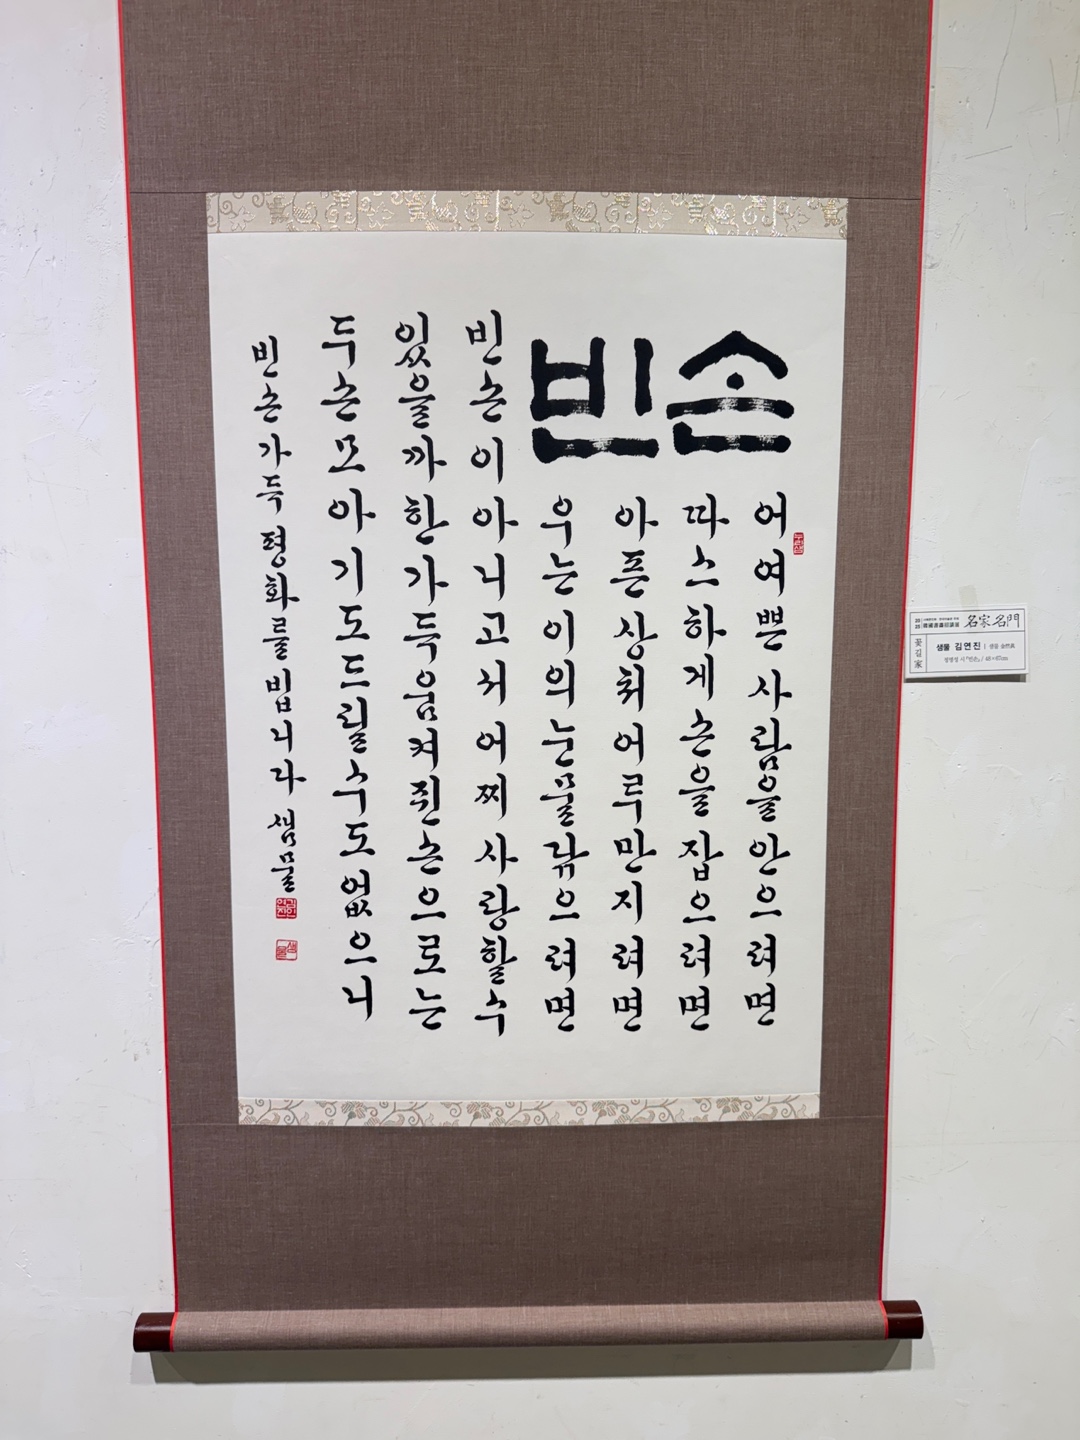 빈손
어여쁜 사람을 안으려면
따스하게 손을 잡으려면
아픈 상처 어루만지려면
우는 이의 눈물 닦으려면
빈손이 아니고서 어찌 사랑할 수
있을까 한가득 움켜쥔 손으로는
두 손 모아 기도드릴 수도 없으니
빈손 가득 평화를 빕니다 샘물
名家名門
꽃길家
샘물 김연진